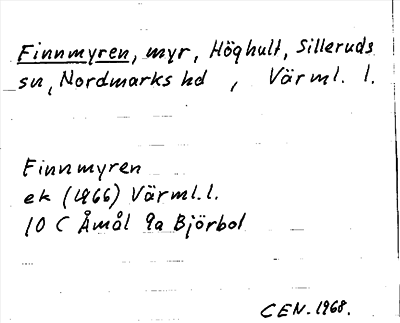 Finnmyren, myr, Höghult, Silleruds
sn, Nordmarks hd, Värml. l.
Finnmyren
ek (1966) Värml. l.
10 C Åmål 9a Björbol
CEN. 1968.